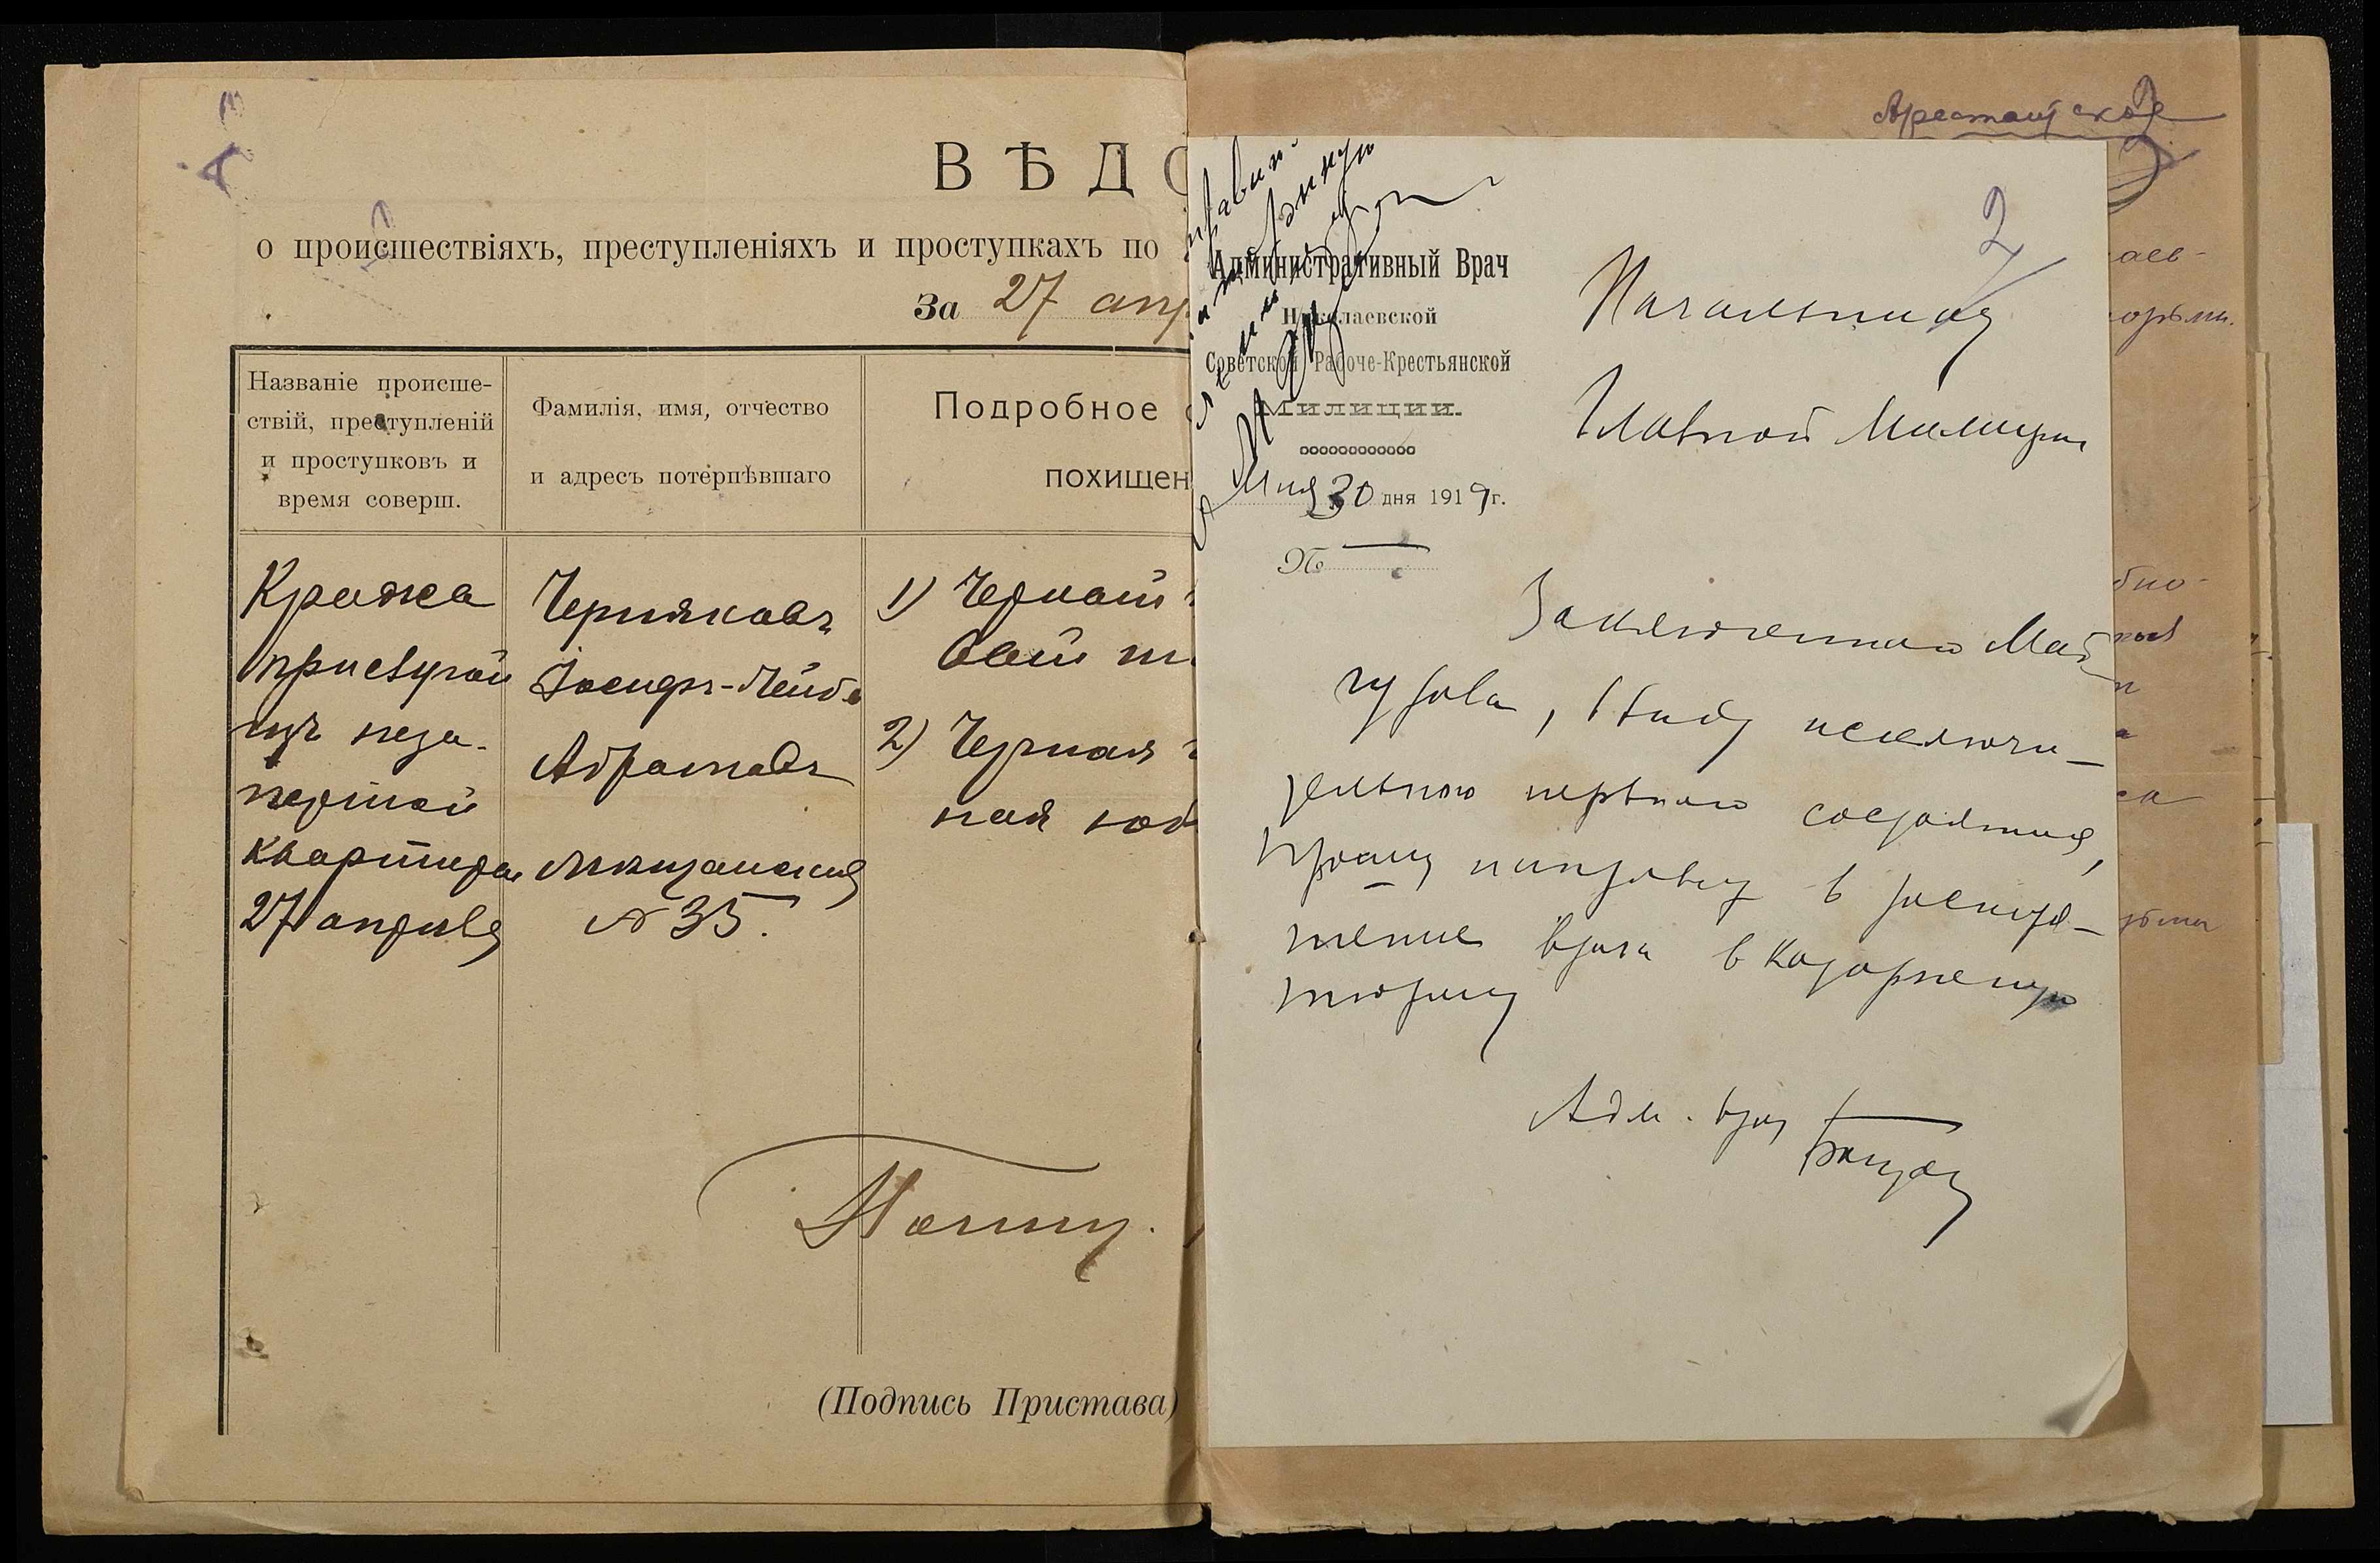 ВѢДО
о происшествіяхъ, преступленіяхъ и проступкахъ по
За 27 апр
Названіе происше-
ствій, преступленій
и проступковъ и
время соверш.
Фамилія, имя, отчество
и адресъ потерпѣвшаго
Подробное
похищен
Кража
прислугой
изъ неза-
пертой
квартиры
27 апрѣля
Черняковъ
Іосифъ-Лейба
Абрамовъ
Мѣщанская
№ 35.
1) Черной
2) Черная
ная юб
(Подпись Пристава)
Арестантское
2
Административный Врач
Николаевской
Советской Рабоче-Крестьянской
Милиции.
Мая 30 дня 1919 г.
№
Начальнику
Главной Милиции
Заключенного Май
гурова, ввиду исключи-
тельного нервного состояния,
прошу направить в распоря-
жение врача в Каторжную
тюрьму
Адм. врач